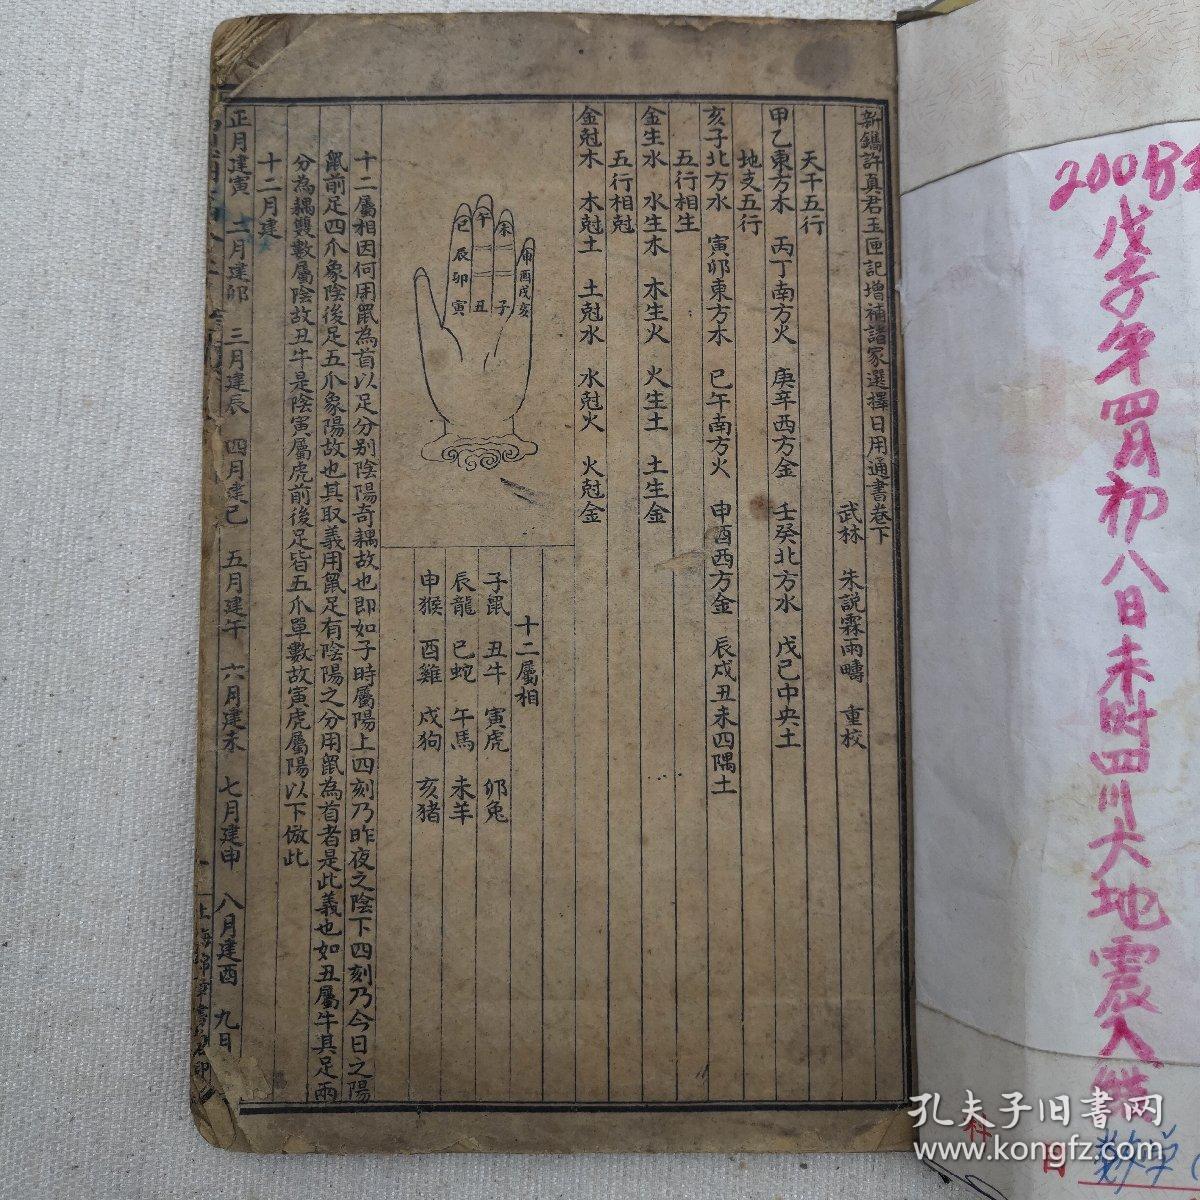 新鐫許真君玉匣記增補諸家選擇日用通書卷下
武林 朱說霖雨疇 重校
天干五行
甲乙東方木 丙丁南方火 庚辛西方金 壬癸北方水 戊己中央土
地支五行
亥子北方水 寅卯東方木 巳午南方火 申酉西方金 辰戌丑未四隅土
五行相生
金生水 水生木 木生火 火生土 土生金
五行相尅
金尅木 木尅土 土尅水 水尅火 火尅金
十二屬相
子鼠 丑牛 寅虎 卯兔
辰龍 巳蛇 午馬 未羊
申猴 酉雞 戌狗 亥猪
申酉戌亥
未
子
午
丑
巳辰卯寅
十二屬相因何用鼠為首以足分別陰陽奇耦故也即如子時屬陽上四刻乃昨夜之陰下四刻乃今日之陽
鼠前足四爪象陰後足五爪象陽故也其取義用鼠足有陰陽之分用鼠為首者是此義也如丑屬牛其足兩
分為耦雙數屬陰故丑牛是陰寅屬虎前後足皆五爪單數故寅虎屬陽以下倣此
十二月建
正月建寅 二月建卯 三月建辰 四月建巳 五月建午 六月建未 七月建申 八月建酉 九月
上海錦章書局石印
2008
戊子年四月初八日未時四川大地震
日
孔夫子旧书网
www.kongfz.com